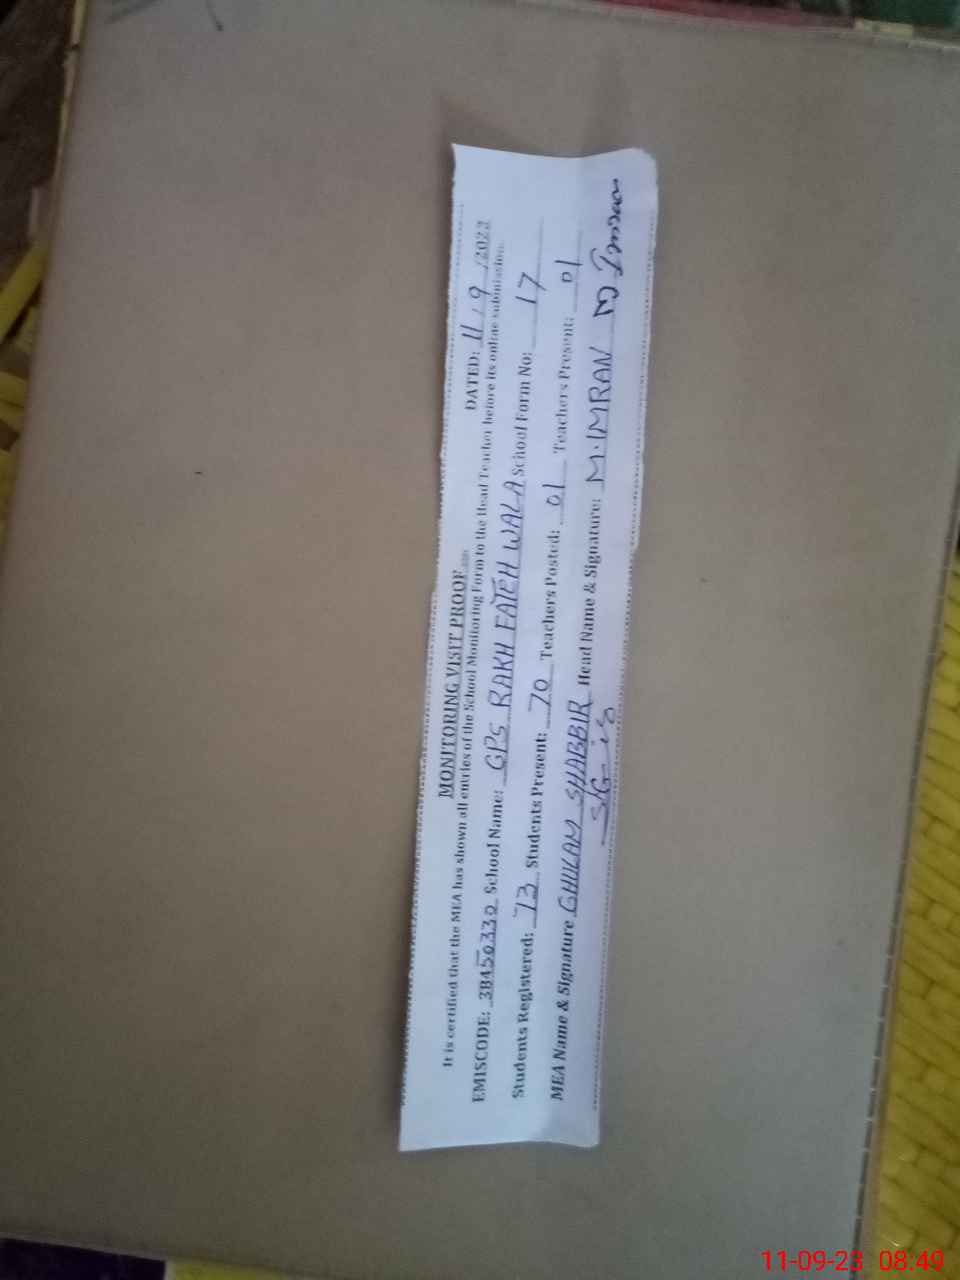 MONITORING VISIT PROOF
It is certified that the MEA has shown all entries of the School Monitoring Form to the Head Teacher before its online submission. DATED: 11/9/2023
EMISCODE: 38450330 School Name: GPS RAKH FATEH WALA School Form No: 17
Students Registered: 73 Students Present: 70 Teachers Posted: 01 Teachers Present: 01
MEA Name & Signature GHULAM SHABBIR Head Name & Signature: M.IMRAN M Imran
11-09-23 08:49